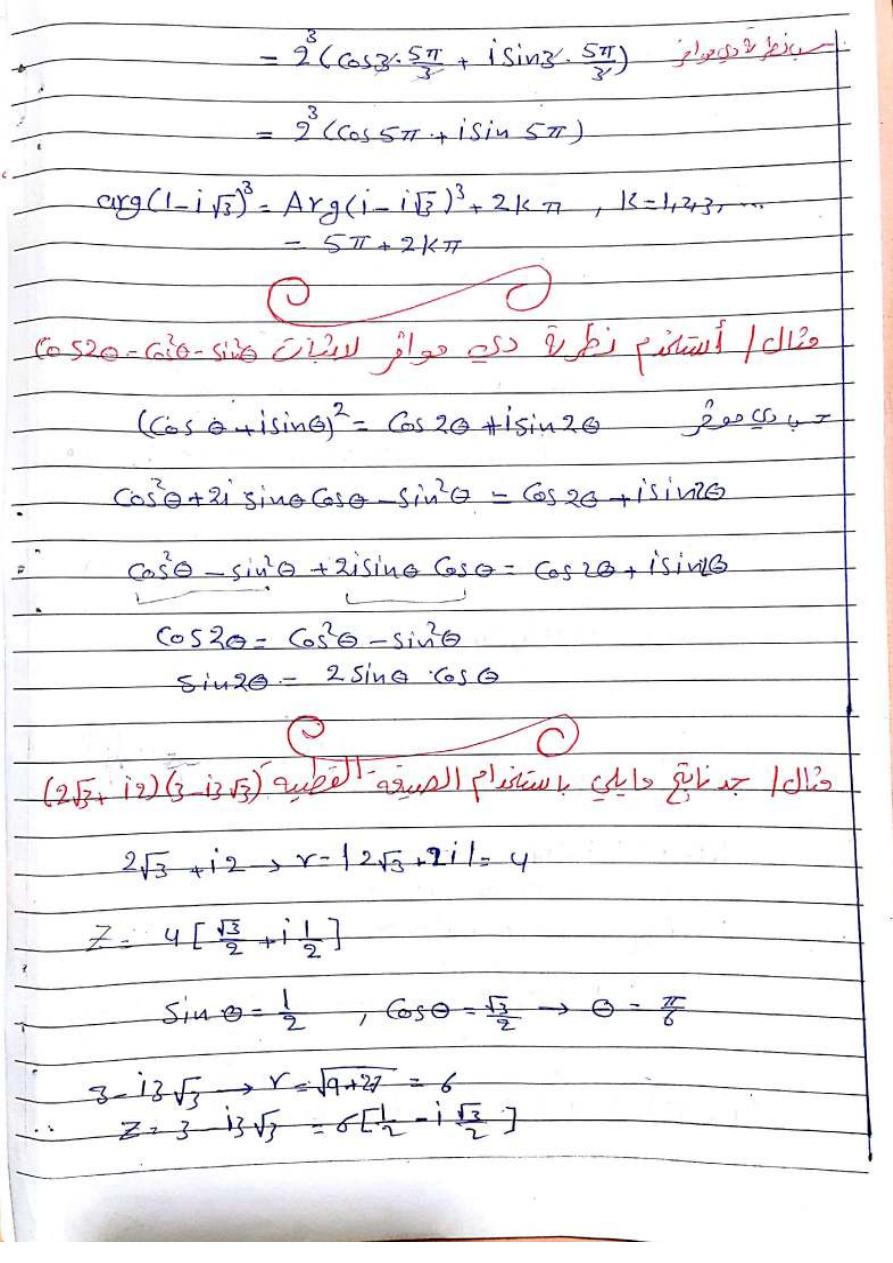 = 2³(Cos3·5π/3 + i Sin3·5π/3) حسب نظرية دي موافر
= 2³(Cos 5π + i Sin 5π)
arg(1-i√3)³ = Arg(i-i√3)³ + 2kπ , K=1,2,3, ...
= 5π + 2kπ
مثال / أستخدم نظرية دي موافر لاثبات Cos2θ = Cos²θ - sin²θ
(Cos θ + i sinθ)² = Cos 2θ + i sin 2θ حسب دي موفر
Cos²θ + 2i sinθ Cosθ - sin²θ = Cos 2θ + i sin2θ
Cos²θ - sin²θ + 2i sinθ Cosθ = Cos 2θ + i sin2θ
Cos2θ = Cos²θ - sin²θ
Sin2θ = 2 Sinθ · Cos θ
مثال / جد ناتج مايلي باستخدام الصيغة القطبيه (2√3 + i2)(3 - i3√3)
2√3 + i2 → r = |2√3 + 2i| = 4
Z = 4[√3/2 + i 1/2]
Sin θ = 1/2 , Cosθ = √3/2 → θ = π/6
3 - i3√3 → r = √9+27 = 6
∴ Z = 3 - i3√3 = 6[1/2 - i √3/2]